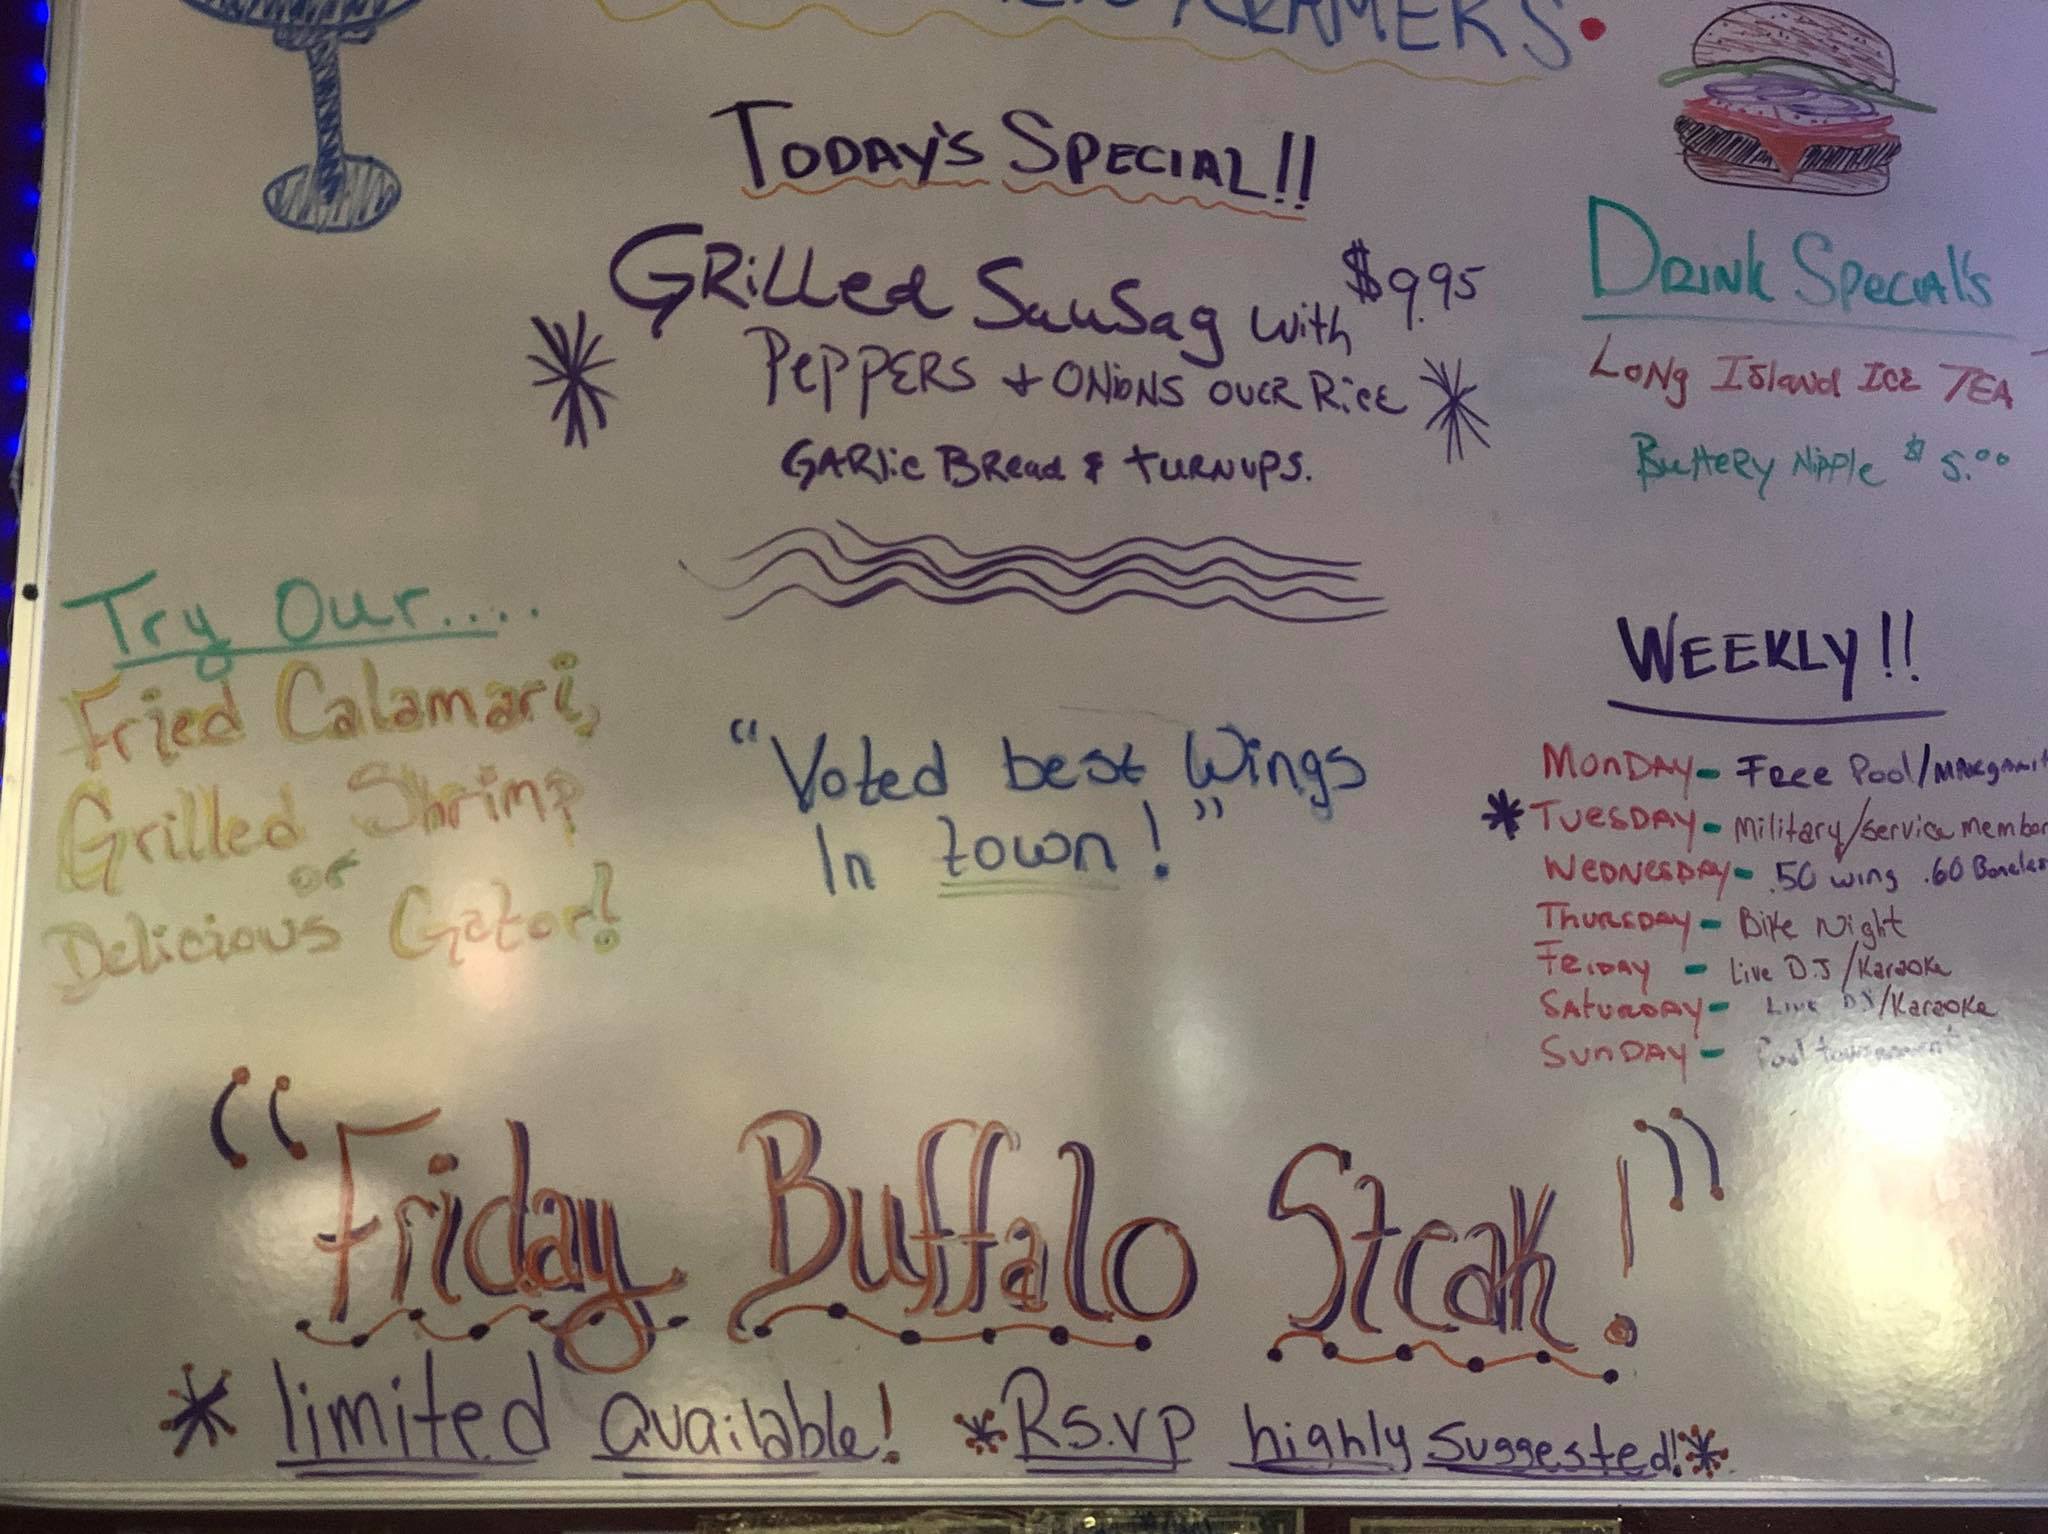 TODAY'S SPECIAL!!
GRilled SauSag with $9.95
PePPERS + ONioNS OVER RicE
GARlic BRead & TURNUPS.
DRINK SPeciAl's
LONg ISland ICE TEA
ButteRy Nipple $5.00
Try Our....
Fried Calamari,
Grilled Shrimp
or
Delicious Gator!
"Voted best Wings
In town!"
WEEKLY!!
MONDAY- FRee Pool/
*TUESDAY- Military/service member
WEDNESDAY- .50 wing .60
THURSDAY- Bike Night
FRIDAY - Live DJ/Karaoke
SATURDAY- Live DJ/Karaoke
SUNDAY- Pool tournament
"Friday Buffalo Steak!"
*limited available! *R.S.V.P highly suggested!*